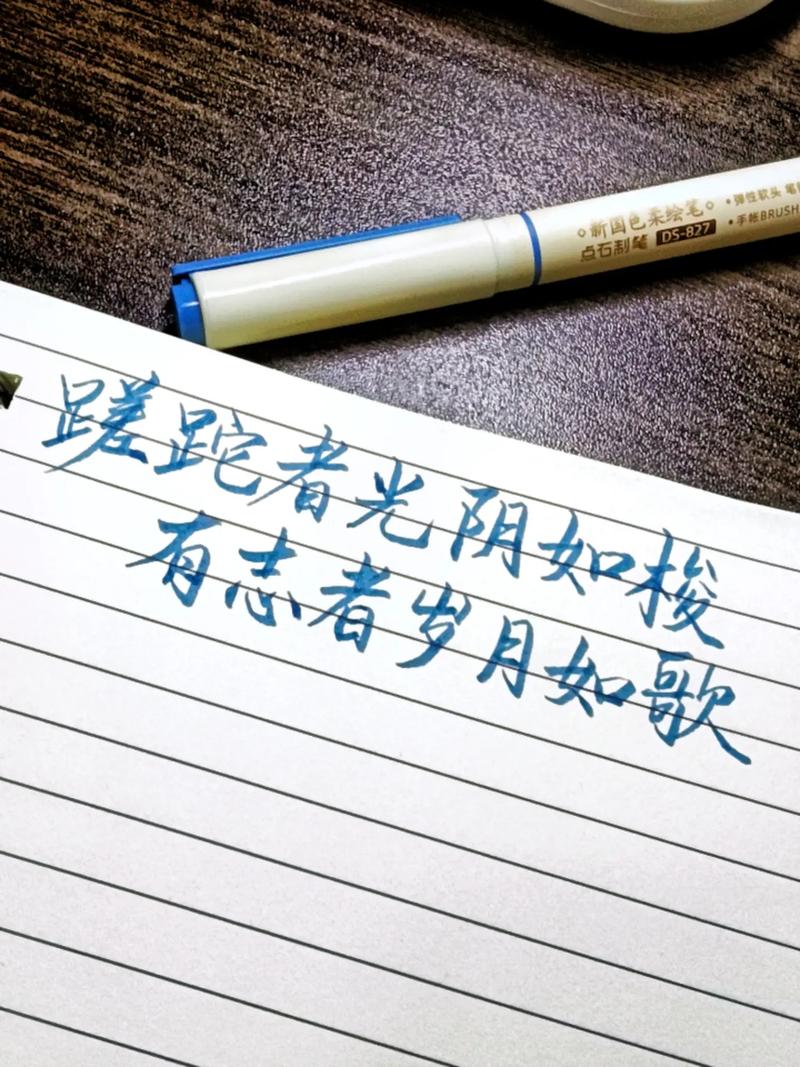 新国色柔绘笔
点石制笔 DS-827
•弹性软头
•手帐BRUSH
蹉跎者光阴如梭
有志者岁月如歌